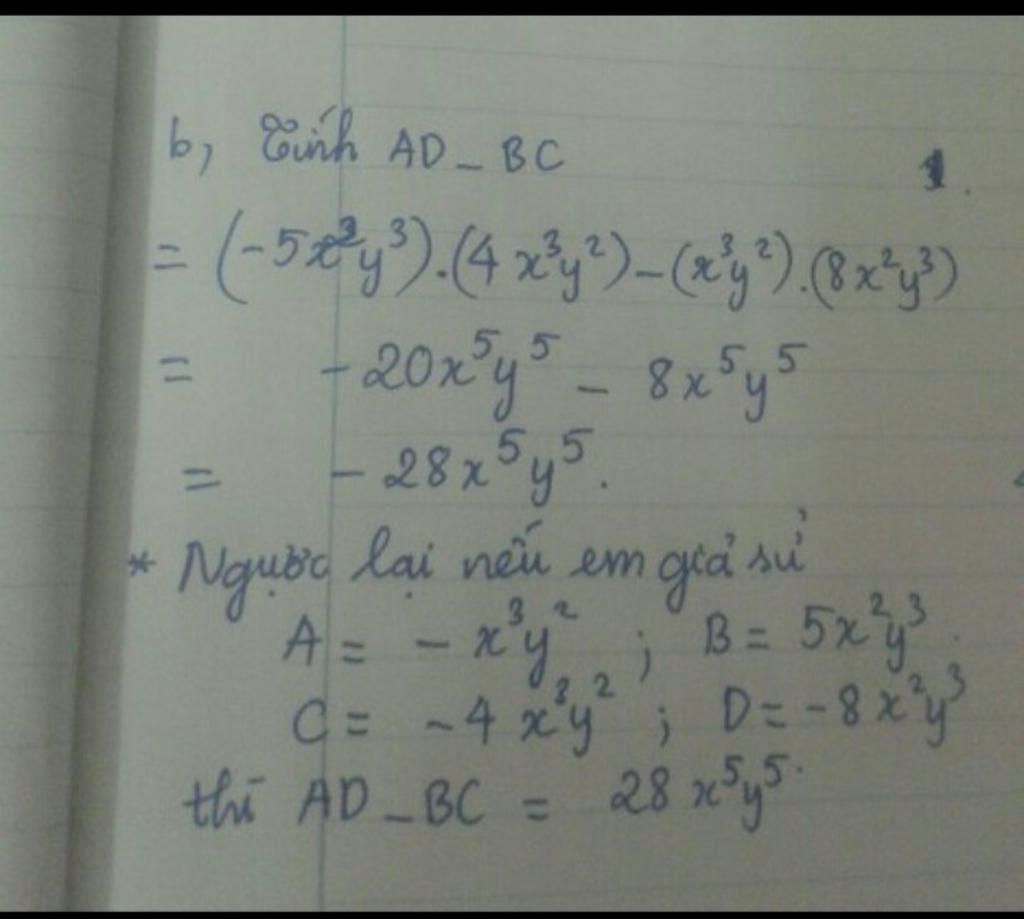 b, Tính AD - BC
1.
= (-5x²y³).(4x³y²) - (x³y²).(8x²y³)
= -20x⁵y⁵ - 8x⁵y⁵
= -28x⁵y⁵.
* Ngược lại nếu em giả sử
A = -x³y² ; B = 5x²y³.
C = -4x³y² ; D = -8x²y³
thì AD - BC = 28x⁵y⁵.